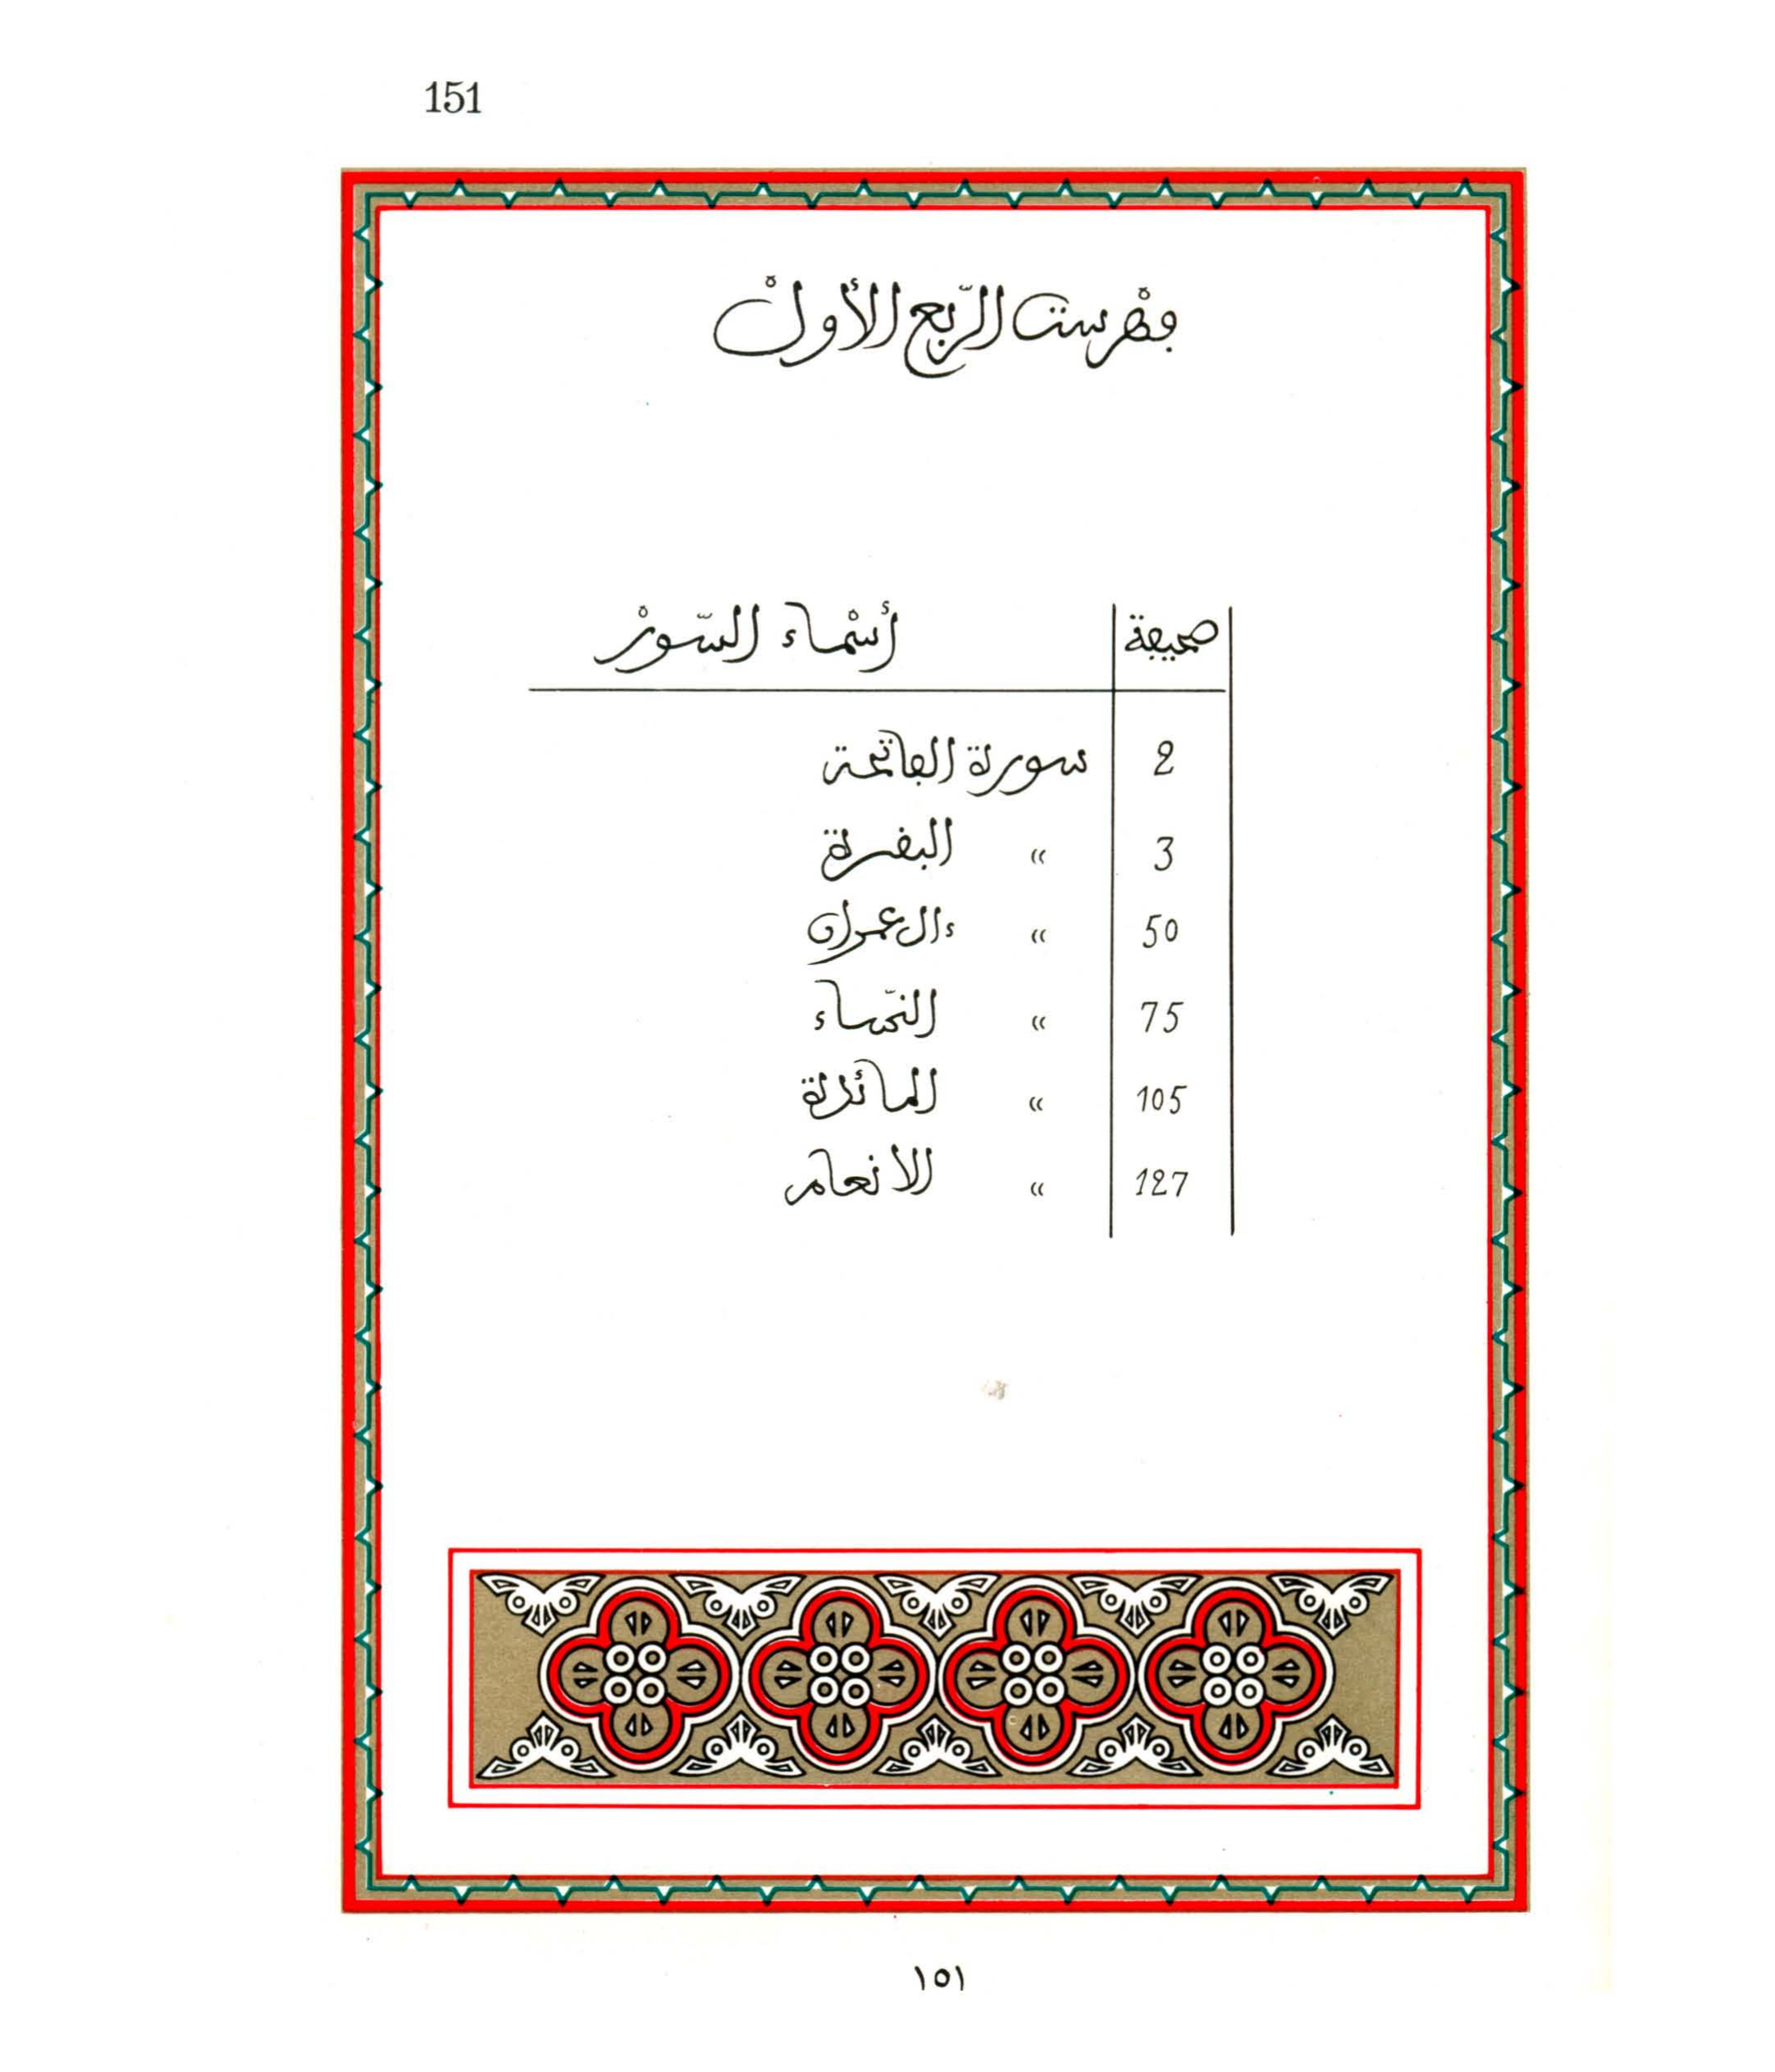 151
فهرست الرّبع الأول
صحيفة أسْماء السّورْ
2 سورة الفاتحة
3 » البقرة
50 » ءال عمران
75 » النّساء
105 » المائدة
127 » الانعام
١٥١